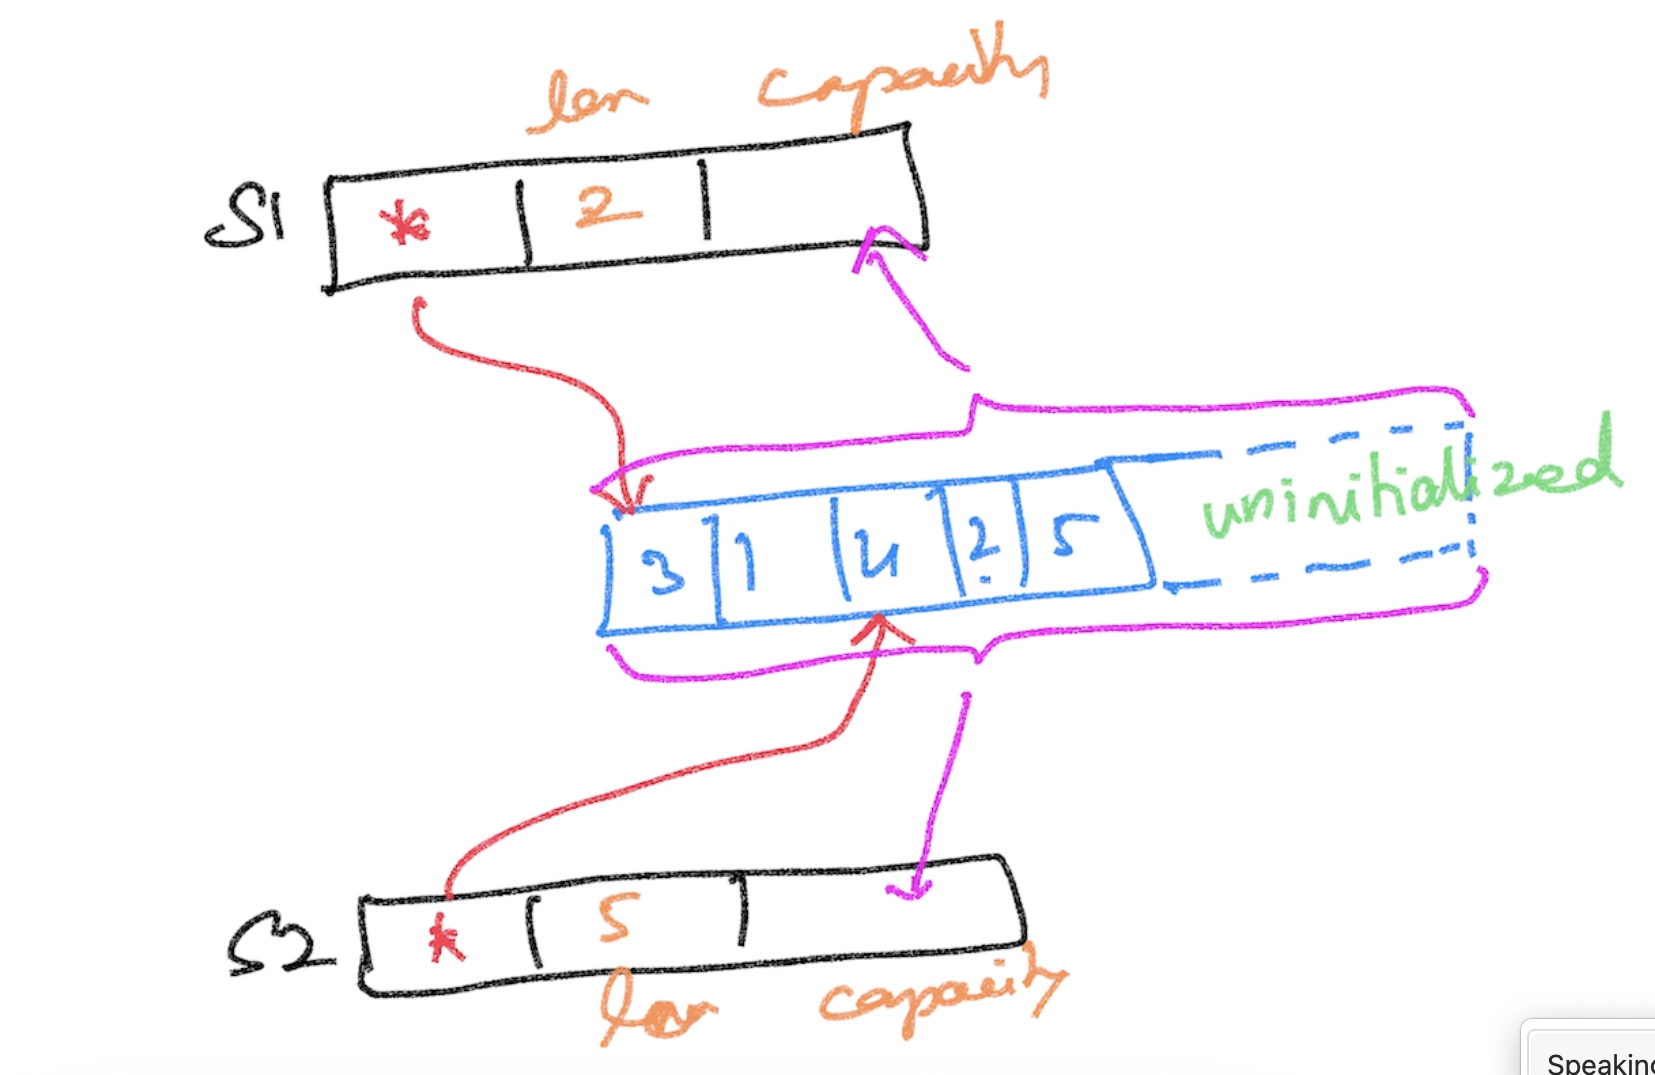 len capacity
S1 * 2
3 1 4 2 5 uninitialized
S2 * 5
len capacity